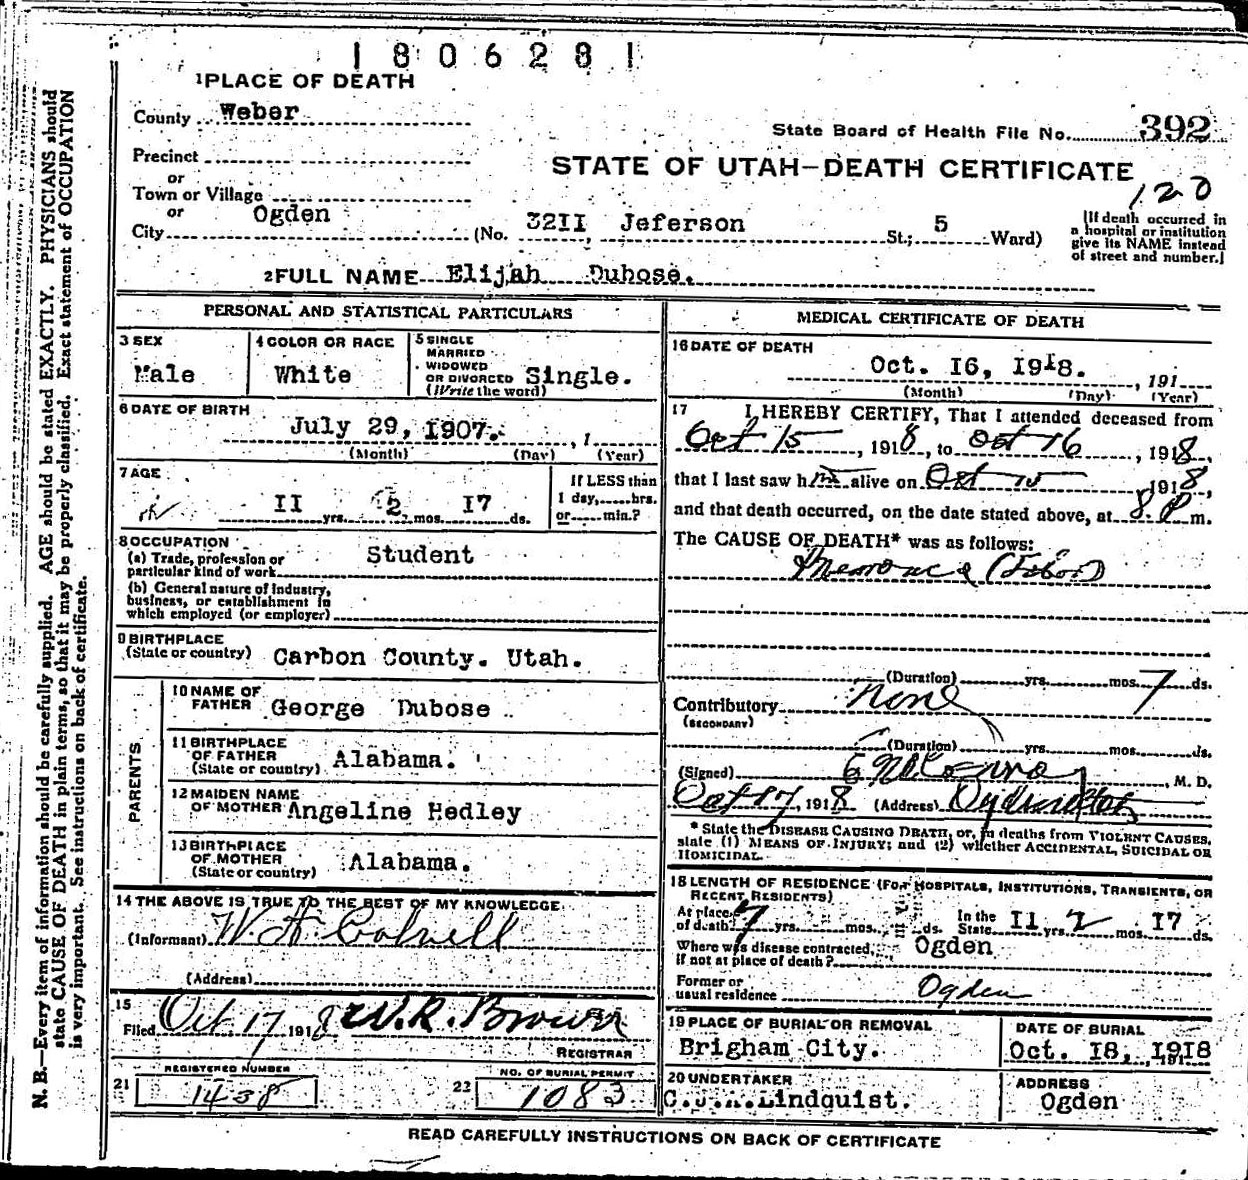 1806281
1 PLACE OF DEATH
County Weber
State Board of Health File No. 392
Precinct
STATE OF UTAH—DEATH CERTIFICATE
or
120
Town or Village
or
City Ogden (No. 32II Jeferson St.; 5 Ward)
[If death occurred in
a hospital or institution
give its NAME instead
of street and number.]
2 FULL NAME Elijah Dubose.
PERSONAL AND STATISTICAL PARTICULARS
3 SEX
Male
4 COLOR OR RACE
White
5 SINGLE
MARRIED
WIDOWED
OR DIVORCED Single.
(Write the word)
6 DATE OF BIRTH
July 29, I907. , 1
(Month) (Day) (Year)
7 AGE
II yrs. 2 mos. I7 ds.
If LESS than
1 day, hrs.
or min.?
8 OCCUPATION
(a) Trade, profession or
particular kind of work Student
(b) General nature of industry,
business, or establishment in
which employed (or employer)
9 BIRTHPLACE
(State or country) Carbon County. Utah.
PARENTS
10 NAME OF
FATHER George Dubose
11 BIRTHPLACE
OF FATHER
(State or country) Alabama.
12 MAIDEN NAME
OF MOTHER Angeline Hedley
13 BIRTHPLACE
OF MOTHER
(State or country) Alabama.
14 THE ABOVE IS TRUE TO THE BEST OF MY KNOWLEDGE
(Informant) W. A.
(Address)
15
Filed Oct. 17, 1918 W. R. Brown
REGISTRAR
REGISTERED NUMBER
21 1438
NO. OF BURIAL PERMIT
22 1083
MEDICAL CERTIFICATE OF DEATH
16 DATE OF DEATH
Oct. I6, I9I8. , 191
(Month) (Day) (Year)
17 I HEREBY CERTIFY, That I attended deceased from
Oct 15, 1918, to Oct 16, 1918,
that I last saw him alive on Oct 15, 1918,
and that death occurred, on the date stated above, at 8 P m.
The CAUSE OF DEATH* was as follows:
(Duration) yrs. mos. 7 ds.
Contributory None
(SECONDARY)
(Duration) yrs. mos. ds.
(Signed) , M. D.
Oct 17, 1918 (Address) Ogden
* State the DISEASE CAUSING DEATH, or, in deaths from VIOLENT CAUSES,
state (1) MEANS OF INJURY; and (2) whether ACCIDENTAL, SUICIDAL OR
HOMICIDAL.
18 LENGTH OF RESIDENCE (FOR HOSPITALS, INSTITUTIONS, TRANSIENTS, OR
RECENT RESIDENTS)
At place
of death 7 yrs. mos. ds. In the
State II yrs. 2 mos. I7 ds.
Where was disease contracted,
if not at place of death? Ogden
Former or
usual residence Ogden
19 PLACE OF BURIAL OR REMOVAL
Brigham City.
DATE OF BURIAL
Oct. I8, I9I8
20 UNDERTAKER
Lindquist.
ADDRESS
Ogden
READ CAREFULLY INSTRUCTIONS ON BACK OF CERTIFICATE
N. B.—Every item of information should be carefully supplied. AGE should be stated EXACTLY. PHYSICIANS should
state CAUSE OF DEATH in plain terms, so that it may be properly classified. Exact statement of OCCUPATION
is very important. See instructions on back of certificate.